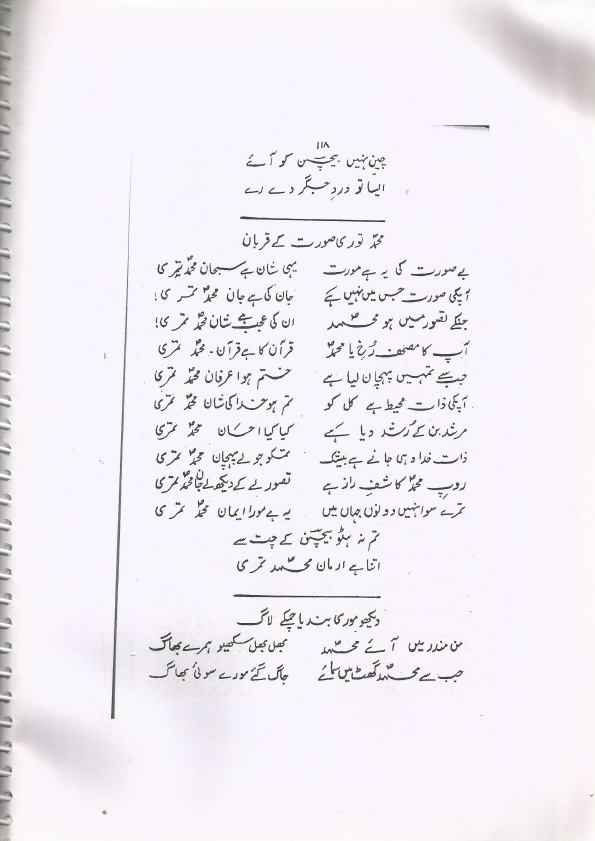 ۱۱۸
چین نہیں بیچین کو آئے
ایسا تو دردِ جگر دے رے
محمدؐ توری صورت کے قربان
بے صورت کی یہ ہے مورت یہی شان ہے سبحان محمدؐ تیری
آپکی صورت جس میں نہیں ہے جان کی ہے جان محمدؐ تمری!
جنکے تصور میں ہو محمدؐ ان کی عجب ہے شان محمدؐ تمری!
آپ کا مصحف رُخ یا محمدؐ قرآن کا ہے قرآن۔ محمدؐ تمری
جب سے تمہیں پہچان لیا ہے ختم ہوا عرفان محمدؐ تمری
آپکی ذات محیط ہے کل کو تم ہو خدا کی شان محمدؐ تمری
مرشد بن کے رُشد دیا ہے کیا کیا احسان محمدؐ تمری
ذات خدا وہی جانے ہے بیشک تمکو جو لے پہچان محمدؐ تمری
روپ محمدؐ کاشفِ راز ہے تصور لے کے دیکھو لے جان محمدؐ تمری
تمرے سوا نہیں دونوں جہاں میں یہ ہے مورا ایمان محمدؐ تمری
تم نہ ہٹو بیچینی کے چت سے
اتنا ہے ارمان محمدؐ تمری
دیکھو موری بندیا چمکے لاگ
من مندر میں آئے محمدؐ بھل بھل سکھیو ہمرے بھاگ
جب سے محمدؐ گھٹ میں سمائے جاگ گئے مورے سوئی بھاگ